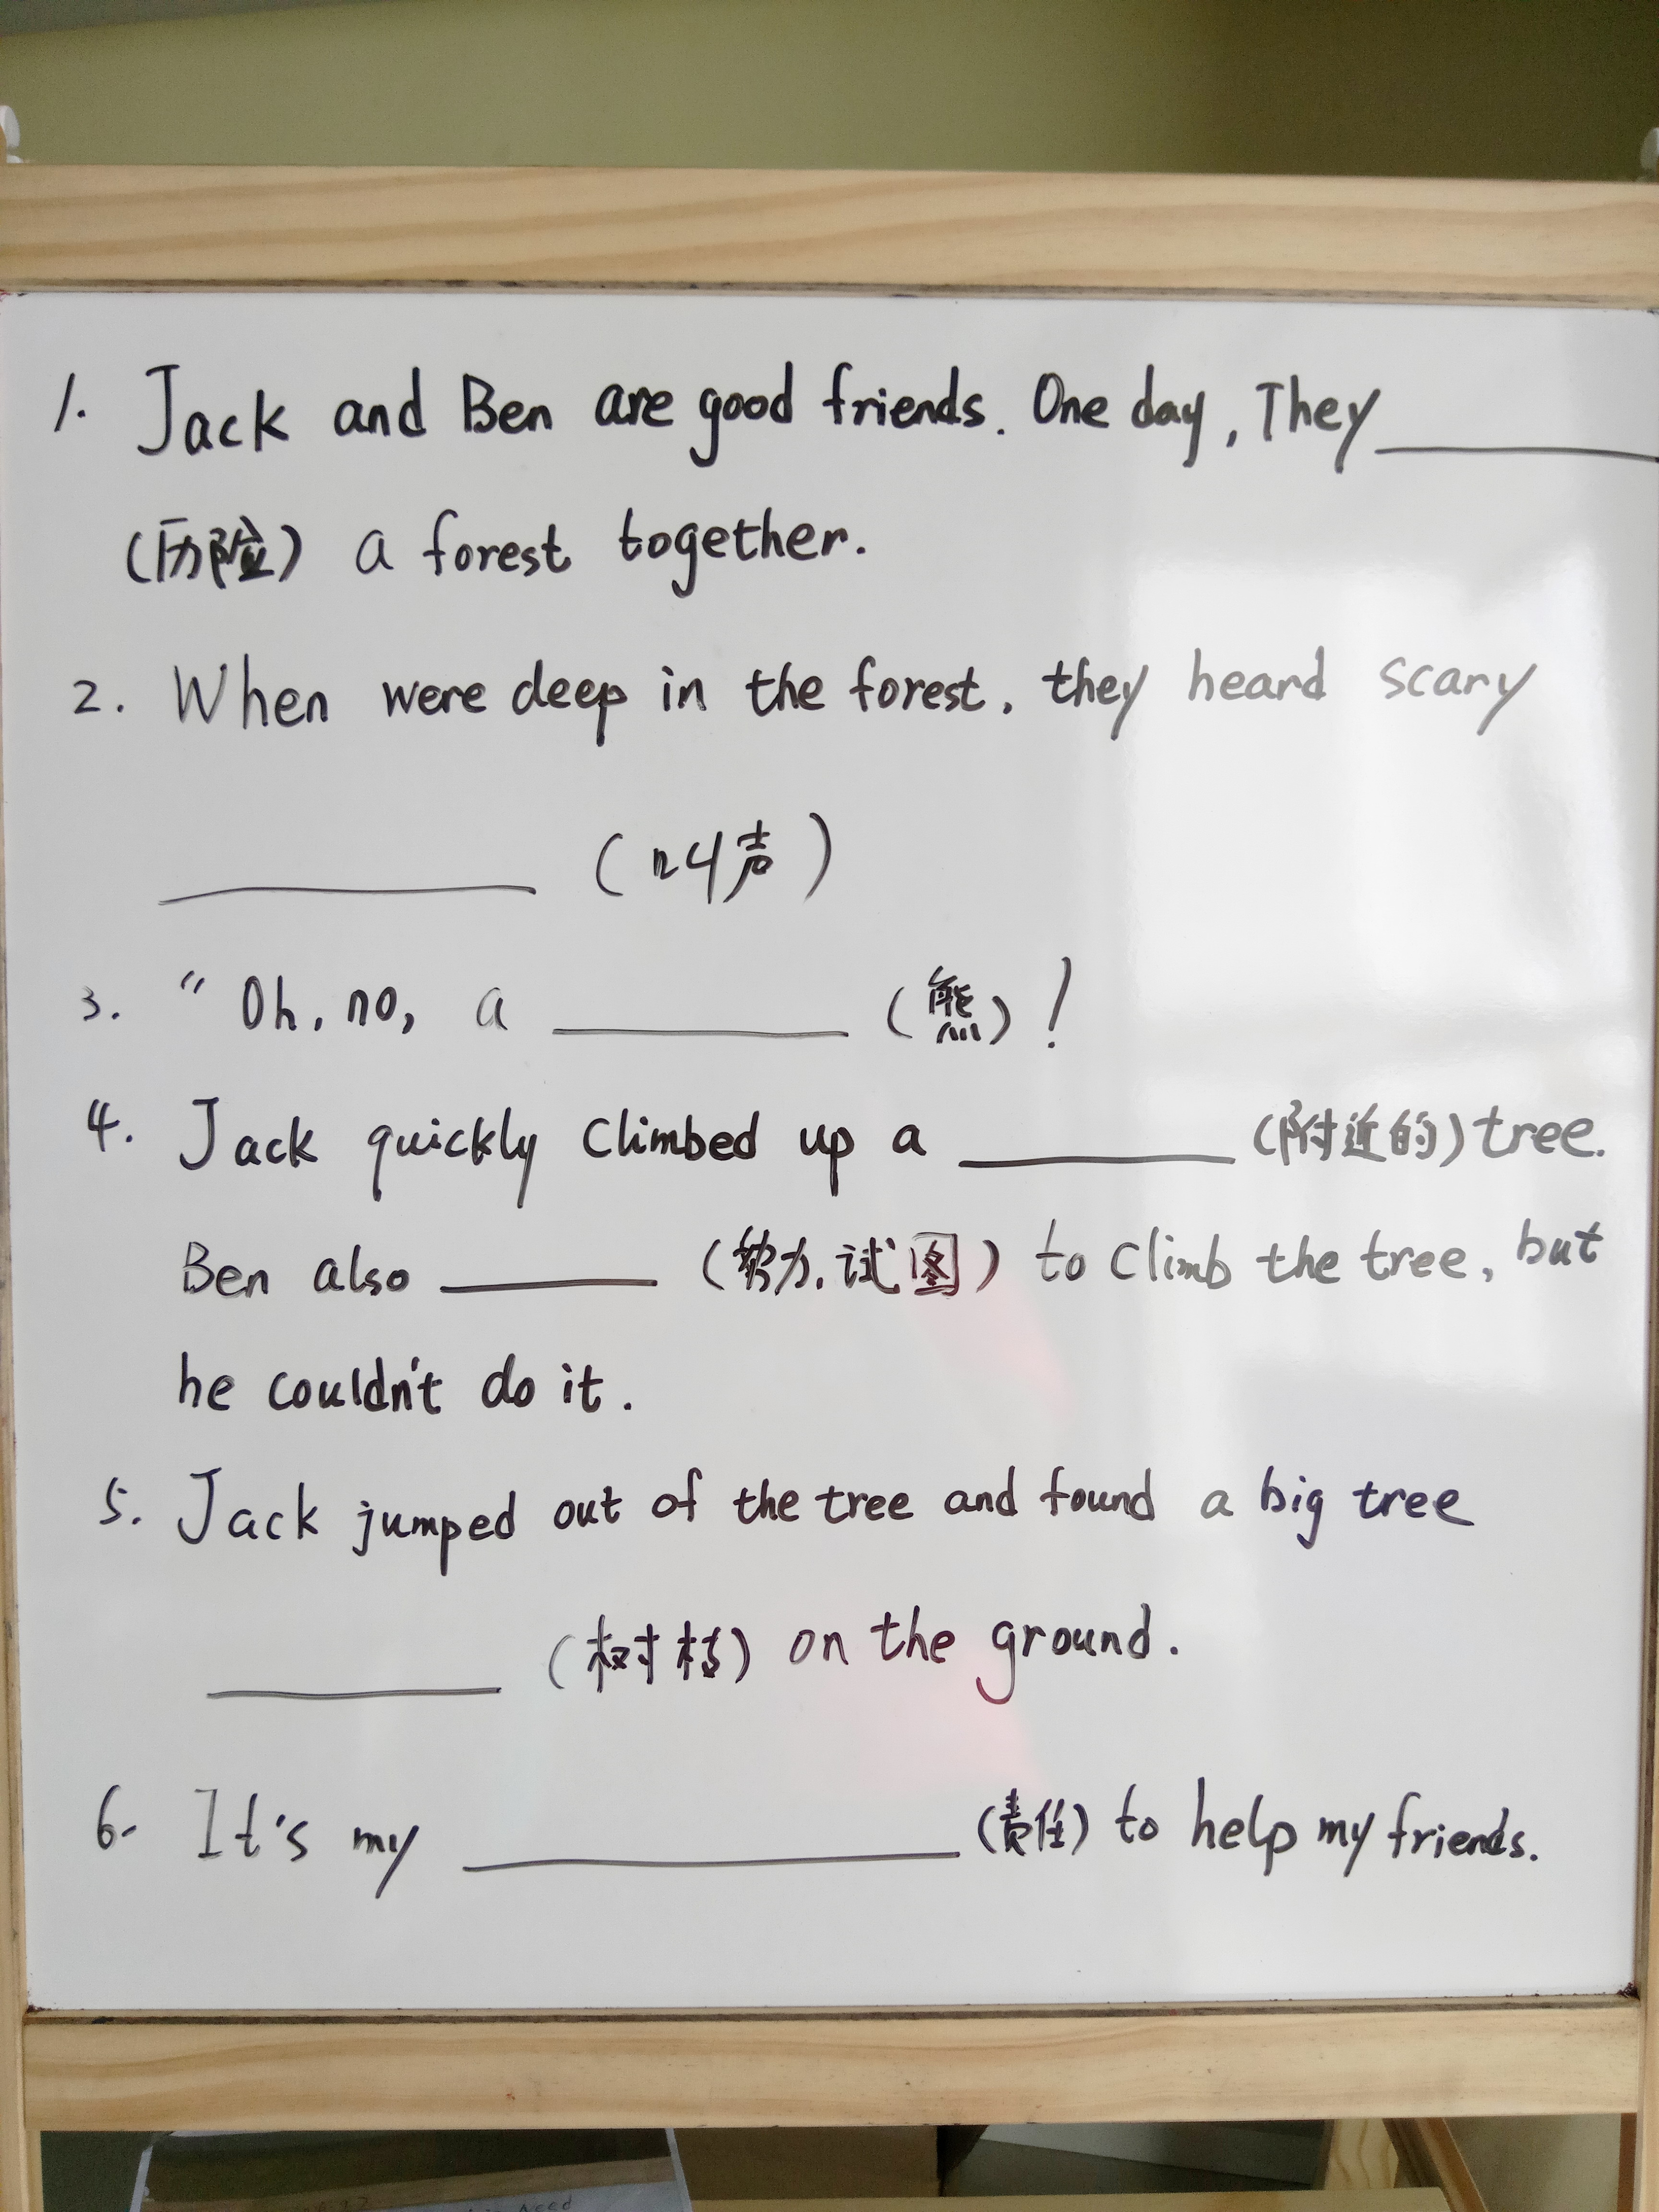 1. Jack and Ben are good friends. One day, They ______
(历险) a forest together.
2. When were deep in the forest, they heard scary
______ (叫声)
3. "Oh, no, a ______ (熊)!
4. Jack quickly climbed up a ______ (附近的) tree.
Ben also ______ (努力,试图) to climb the tree, but
he couldn't do it.
5. Jack jumped out of the tree and found a big tree
______ (树枝) on the ground.
6. It's my ______ (责任) to help my friends.
Need